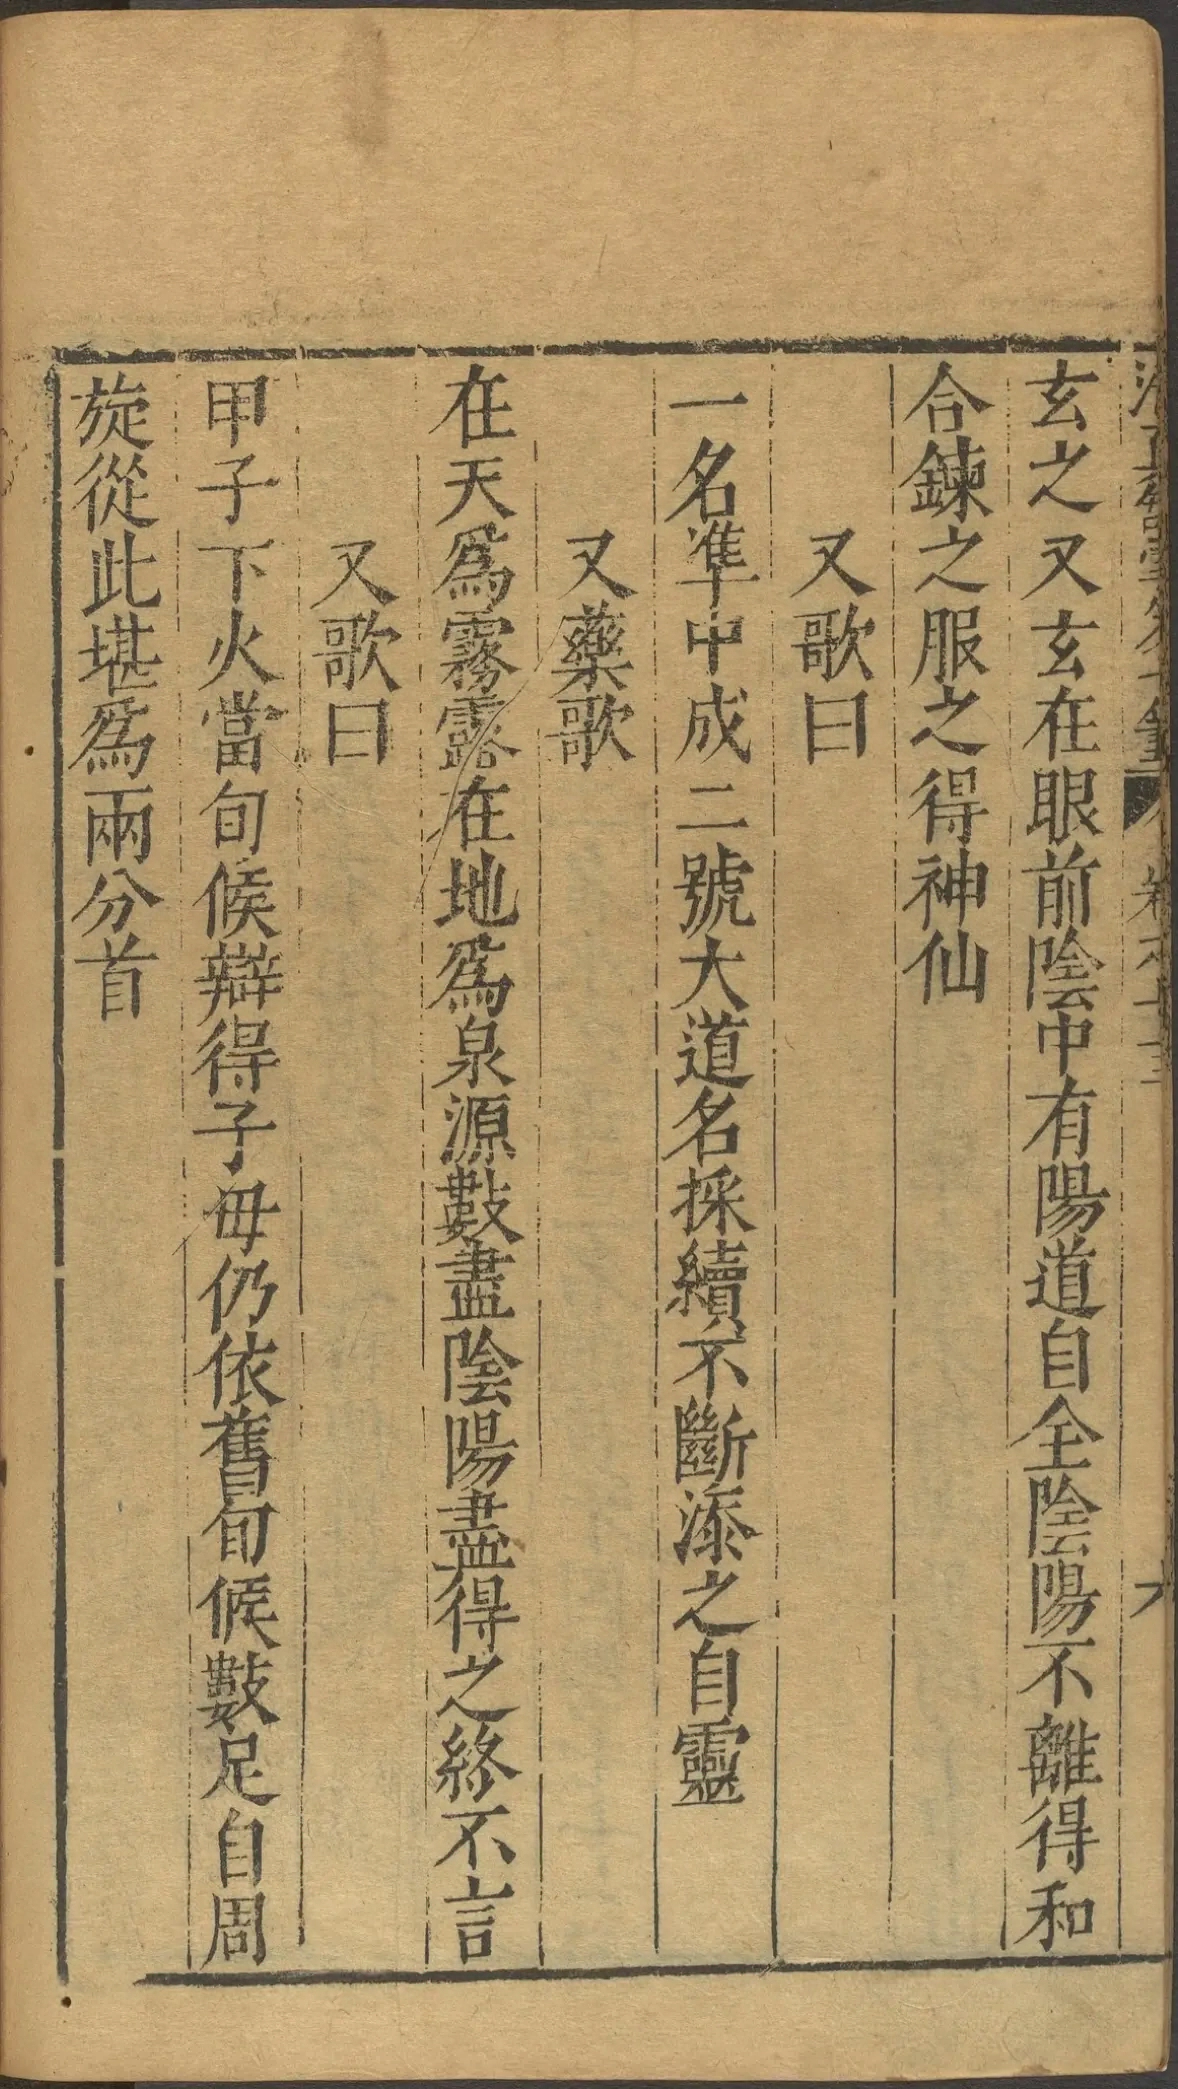 玄之又玄在眼前陰中有陽道自全陰陽不離得和
合鍊之服之得神仙
又歌曰
一名準中成二號大道名採續不斷漆之自靈
又藥歌
在天爲霧露在地爲泉源數盡陰陽盡得之終不言
又歌曰
甲子下火當旬候辯得子母仍依舊旬候數足自周
旋從此堪爲兩分首